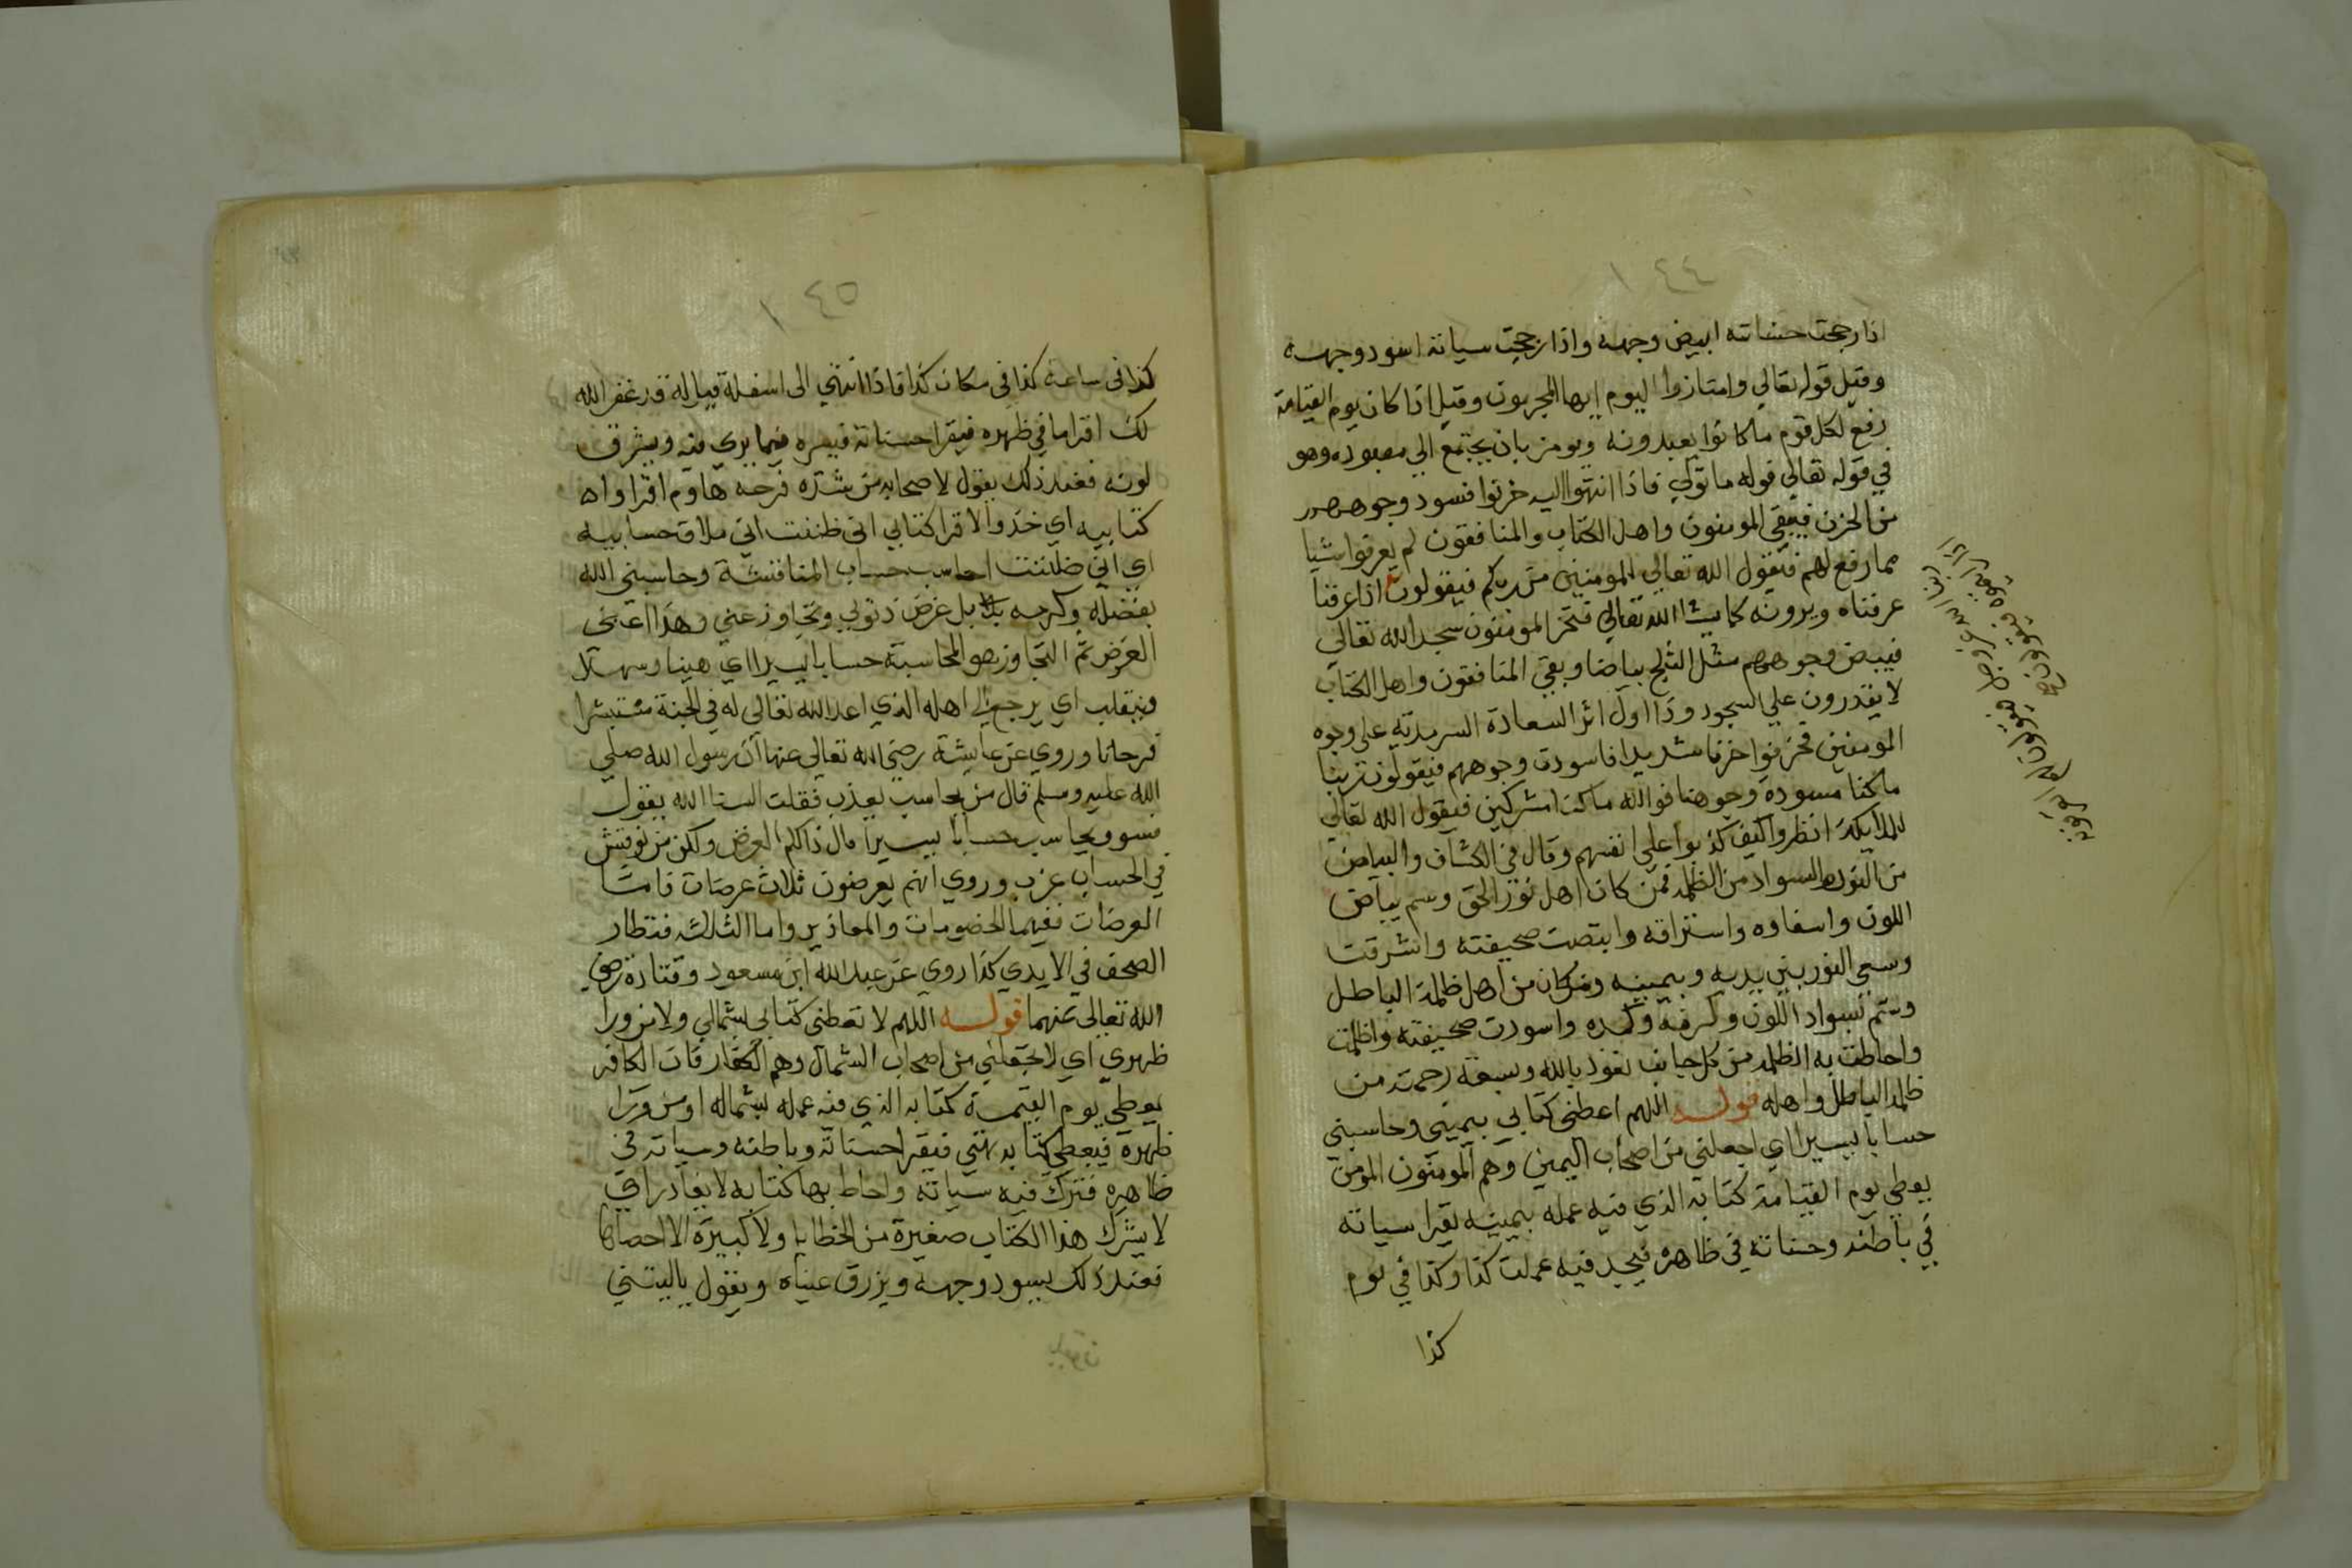 ١٤٤
اذا رجحت حسناته ابيض وجهه واذا رجحت سياته اسود وجهه
وقيل قوله تعالي وامتازوا اليوم ايها المجرمون وقيل اذا كان يوم القيامة
رفع لكل قوم ما كانوا يعبدونه ويومر بان يجتمع الي معبوده وهو
في قوله تعالي قوله ما تولي فاذا انتهوا اليه خزنوا فسود وجوههم
من الحزن فيبقي المومنون واهل الكتاب والمنافقون لم يعرفوا شيا
مما رفع لهم فيقول الله تعالي المومنين من ربكم فيقولون اذا عرفنا
عرفناه ويرونه كما يشا الله تعالي فتخر المومنون سجد الله تعالي
فيبض وجوههم مثل الثلج بياضا وبقي المنافقون واهل الكتاب
لا يقدرون علي السجود وذا اول اثر السعادة السرمدية علي وجوه
المومنين فحزنوا حزنا شديدا فاسودت وجوههم فيقولون ربنا
ما كنا مسودة وجوهنا فوالله ما كنا مشركين فيقول الله تعالي
للملايكة انظروا كيف كذبوا علي انفسهم وقال في الكشاف والبياض
من النور والسواد من الظلمة فمن كان اهل نور الحق وسم ببياض
اللون واسفاره واستراقه وابيضت صحيفته واشرقت
وسعي النور بين يديه وبيمينه ومن كان من اهل ظلمة الباطل
وسم بسواد اللون وكرفه وكمده واسودت صحيفته واظلمت
واحاطت به الظلمة من كل جانب نعوذ بالله وسعة رحمته من
ظلمة الباطل واهله قوله اللهم اعطني كتابي بيميني وحاسبني
حسابا يسيرا اي اجعلني من اصحاب اليمين وهم المومنون المومن
يعطي يوم القيامة كتابه الذي فيه عمله بيمينه يقرا سياته
في باطنه وحسناته في ظاهره فيجد فيه عملت كذا وكذا في يوم
كذا
١٤٥
كذا في ساعة كذا في مكان كذا فاذا انتهي الي اسفله قيل له قد غفر الله
لك اقرا ما في ظهره فيقرا حسناته فيسره فيما يري منه ويشرق
لونه فعند ذلك يقول لاصحابه من شدة فرحه هاوم اقراواه
كتابيه اي خذوا الاقرا كتابي اني ظننت اني ملاق حسابيه
اي اني ظننت احاسب حساب المنافشة وحاسبني الله
بفضله وكرمه بلا بل غرض ذنوبي وتجاوز عني وهذا اعني
العرض ثم التجاوز هو المحاسبة حسابا يسيرا اي هينا وسهلا
وينقلب اي يرجع الي اهله الذي اعد الله تعالي له في الجنة مستبشرا
فرحانا وروي عن عايشة رضي الله تعالي عنها ان رسول الله صلي
الله عليه وسلم قال من يحاسب يعذب فقلت الستا الله يقول
فسوف يحاسب حسابا يسيرا قال ذاكم العرض ولكن من نوقش
في الحساب عزب وروي انهم يعرضون ثلاث عرضات فامتا
العرضات ففيهما الخصومات والمعاذير واما الثالث فتطار
الصحف في الايدي كذا روي عن عبد الله ابن مسعود وقتادة رضي
الله تعالي عنهما قوله اللهم لا تعطني كتابي بشمالي ولا من ورا
ظهري اي لا تجعلني من اصحاب الشمال وهم الكفار فان الكافر
يعطي يوم القيمة كتابه الذي فيه عمله بشماله او من ورا
ظهره فيعطي كتابه فيقرا حسناته وباطنه وسياته في
ظاهره فترك فيه سياته واحاط بها كتابه لا يغادر اي
لا يترك هذا الكتاب صغيرة من الخطايا ولا كبيرة الا احصاها
فعند ذلك يسود وجهه ويزرق عيناه ويقول ياليتني